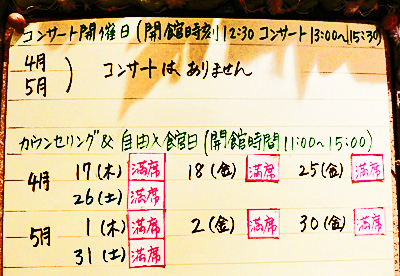 コンサート開催日(開館時刻12:30 コンサート13:00~15:30)
4月
5月 ) コンサートは、ありません
カウンセリング & 自由入館日(開館時間11:00~15:00)
4月 17(木) 満席 18(金) 満席 25(金) 満席
26(土) 満席
5月 1(木) 満席 2(金) 満席 30(金) 満席
31(土) 満席